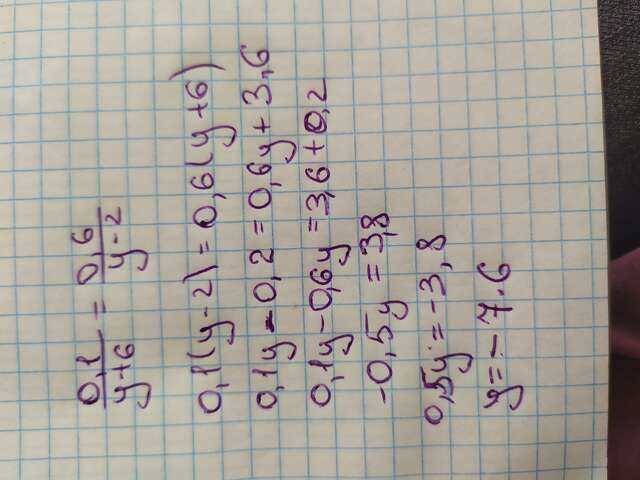 0,1/y+6 = 0,6/y-2
0,1(y-2) = 0,6(y+6)
0,1y-0,2 = 0,6y+3,6
0,1y-0,6y = 3,6+0,2
-0,5y = 3,8
0,5y = -3,8
y = -7.6